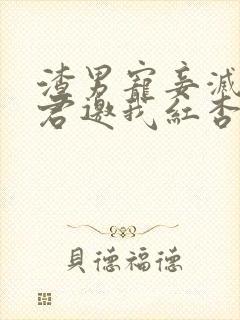 渣男寵妾滅
君邀我紅杏
貝德福德